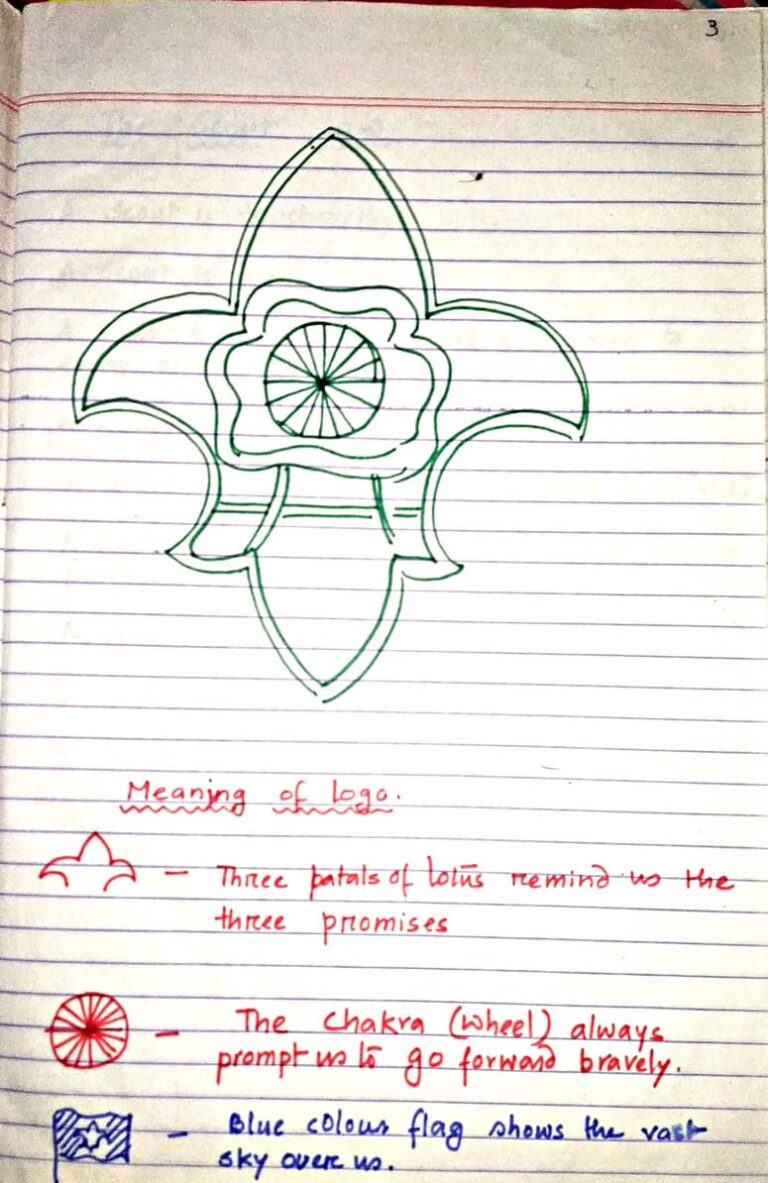 3
Meaning of logo.
— Three patals of lotus remind us the
three promises
— The Chakra (wheel) always
prompt us to go forward bravely.
— Blue colour flag shows the vast
sky over us.